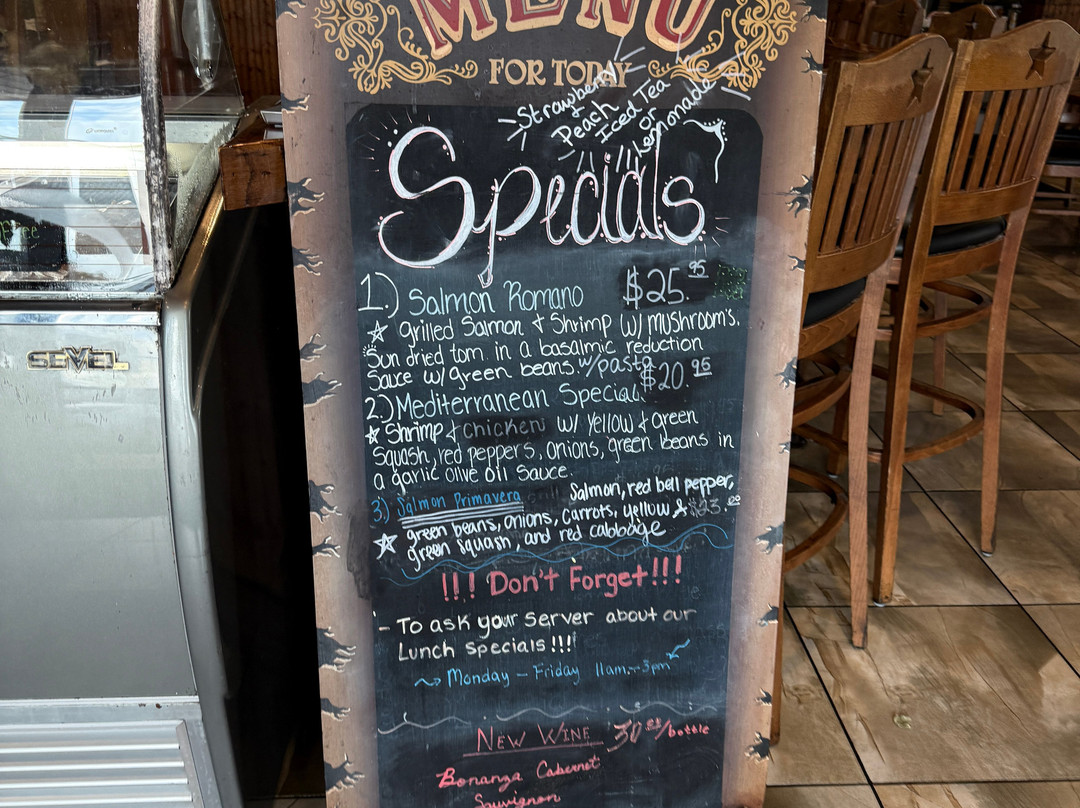 MENU
FOR TODAY
Strawberry
Peach
Iced Tea
or
Lemonade
Specials
1.) Salmon Romano $25.95
☆ grilled Salmon & Shrimp w/ mushroom's,
Sun dried tom. in a basalmic reduction
Sauce w/ green beans w/pasta
2.) Mediterranean Special $20.95
☆ Shrimp & chicken w/ yellow & green
Squash, red peppers, onions, green beans in
a garlic olive oil sauce.
3.) Salmon Primavera Salmon, red bell pepper,
☆ green beans, onions, carrots, yellow & $23.00
green squash, and red cabbage
!!! Don't Forget!!!
- To ask your Server about our
Lunch Specials!!!
Monday - Friday 11am - 3pm
New Wine 30.00/bottle
Bonanza Cabernet
Sauvignon